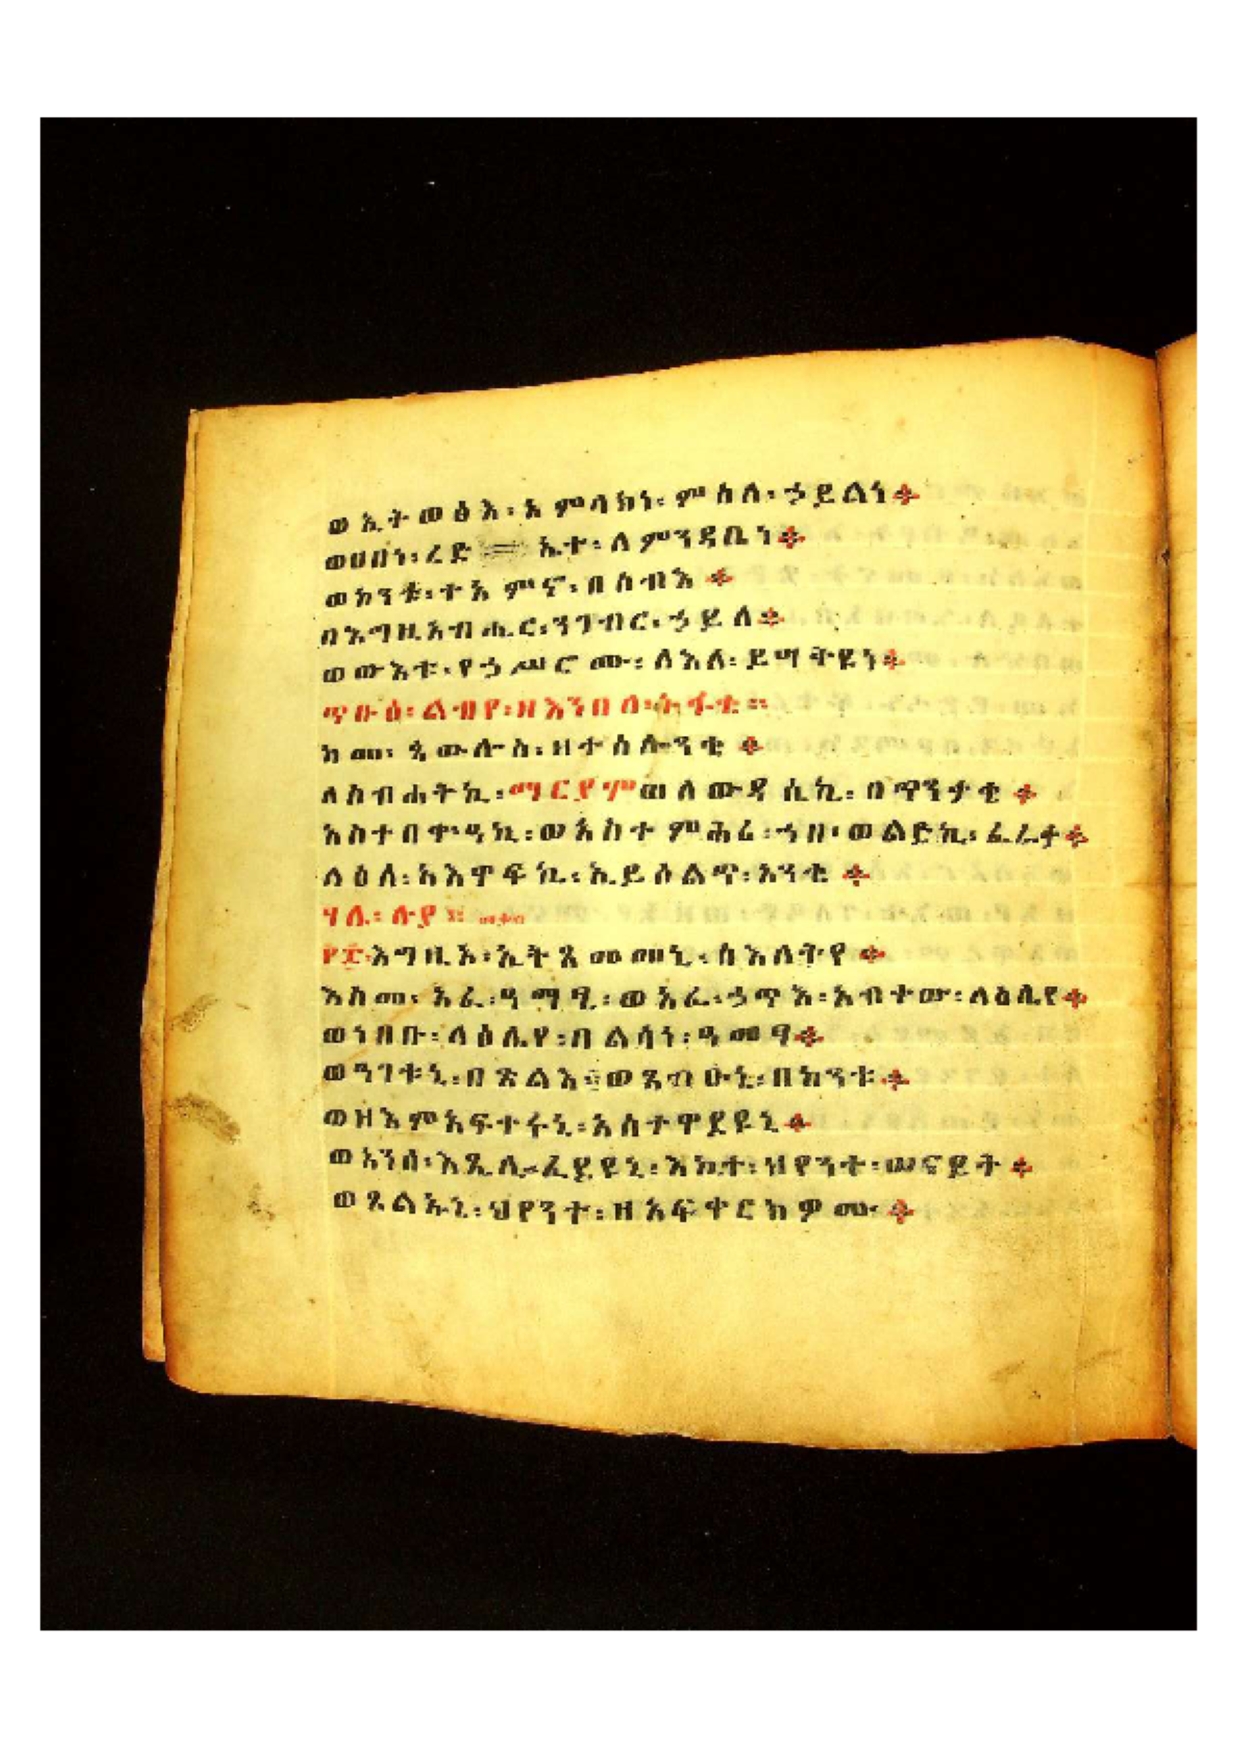 ወኢትወፅእ፡አምላክነ፡ምስለ፡ኃይልነ።
ወሀበነ፡ረድ ኤተ፡ለምንዳቤነ።
ወከንቱ፡ተአምኖ፡በሰብእ።
በእግዚአብሔር፡ንገብር፡ኃይለ።
ወውእቱ፡የኃሥሮሙ፡ለእለ፡ይሣቅዩነ።
ጥዑዕ፡ልብየ፡ዘእንበለ፡
ከመ፡ጳውሎስ፡ዘተሰሎንቄ።
ለስብሐትኪ፡ማርያምወለውዳሴኪ፡በጥንታቄ።
አስተበቍዓኪ፡ወአስተምሕሬ፡ኀበ፡ወልድኪ፡ፈራቂ።
ላዕለ፡አእዋፍኪ፡ኢይሰልጥ፡አንቄ።
ሃሌ፡ሉያ።
፻፰እግዚኦ፡ኢትጸመመኒ፡ስእለትየ።
እስመ፡አፈ፡ዓማፂ፡ወአፈ፡ኃጥእ፡አብቀወ፡ላዕሌየ።
ወነበቡ፡ላዕሌየ፡በልሳነ፡ዓመፃ።
ወዓገቱኒ፡በጽልእ፡ወጸብዑኒ፡በከንቱ።
ወዘእምአፍቀሩኒ፡አስተዋደዩኒ።
ወአንሰ፡እጼሊ፡ፈደዩኒ፡እኪተ፡ህየንተ፡ሠናይት።
ወጸልኡኒ፡ህየንተ፡ዘአፍቀርክዎሙ።